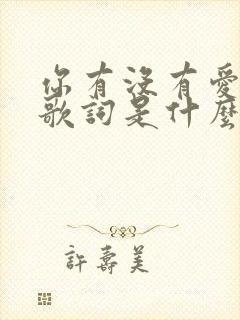 你有沒有愛
歌詞是什麼
許壽美